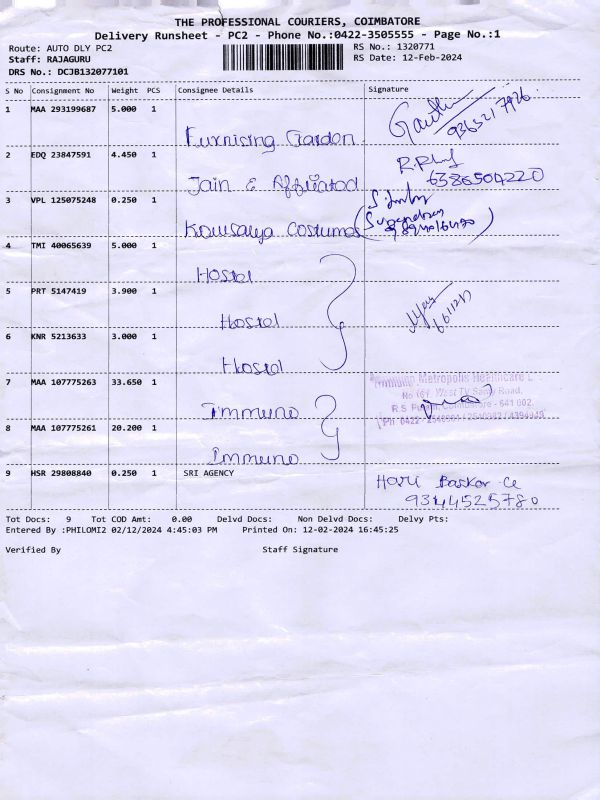 THE PROFESSIONAL COURIERS, COIMBATORE
Delivery Runsheet - PC2 - Phone No.:0422-3505555 - Page No.:1
Route: AUTO DLY PC2
RS No.: 1320771
Staff: RAJAGURU
RS Date: 12-Feb-2024
DRS No.: DCJB132077101
S No Consignment No Weight PCS Consignee Details Signature
1 MAA 293199687 5.000 1
Furnising Gardon
2 EDQ 23847591 4.450 1
Jain & Affiliatad
6386504220
3 VPL 125075248 0.250 1
Kowsalya Costumes
4 TMI 40065639 5.000 1
Hostel
5 PRT 5147419 3.900 1
Hostel
6 KNR 5213633 3.000 1
Hostel
7 MAA 107775263 33.650 1
Immuno
Metropolis Healthcare L
West TV Samy Road,
R.S Coimbatore - 641 002.
Ph 0422
8 MAA 107775261 20.200 1
Immuno
9 HSR 29808840 0.250 1 SRI AGENCY
Hari Baskar
9344525780
Tot Docs: 9 Tot COD Amt: 0.00 Delvd Docs: Non Delvd Docs: Delvy Pts:
Entered By :PHILOMI2 02/12/2024 4:45:03 PM Printed On: 12-02-2024 16:45:25
Verified By Staff Signature